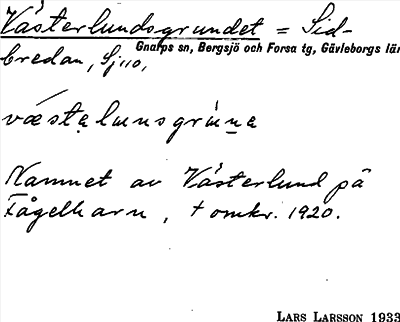 Västerlundsgrundet = Sid-
Gnarps sn, Bergsjö och Forsa tg, Gävleborgs län
bredan, Sjö,
væstəlunsgrúnə
Namnet av Västerlund på
Fågelharn, † omkr. 1920.
LARS LARSSON 1933